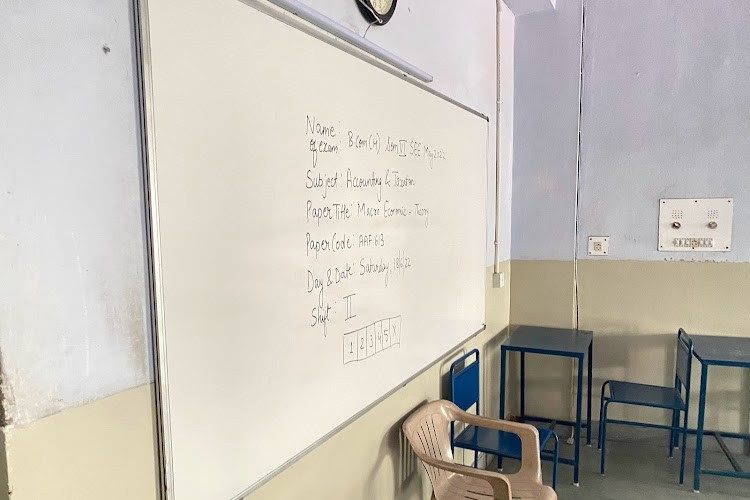 Name
of exam: B.Com(H) Sem VI SEE May 2022
Subject: Accounting & Taxation
Paper Title: Macro Economic - Theory
Paper Code: AAF 613
Day & Date: Saturday,
Shift: II
1 2 3 4 5 X